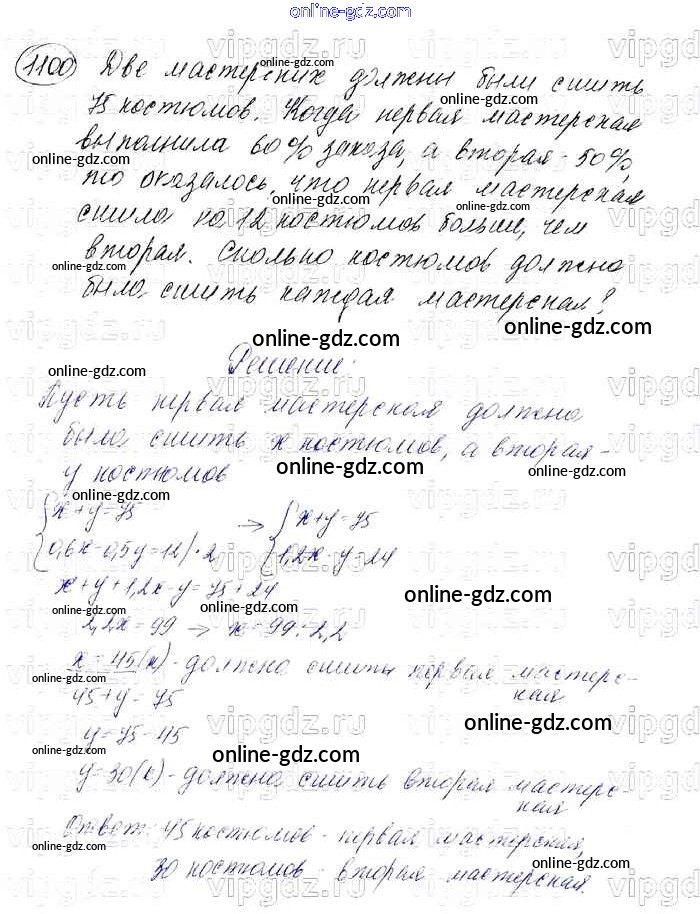 online-gdz.com
1100 Две мастерских должны были сшить
75 костюмов. Когда первая мастерская
выполнила 60% заказа, а вторая - 50%,
то оказалось, что первая мастерская
сшила на 12 костюмов больше, чем
вторая. Сколько костюмов должна
была сшить каждая мастерская?
online-gdz.com
Решение:
Пусть первая мастерская должна
была сшить x костюмов, а вторая -
y костюмов
{x+y=75 → {x+y=75
{0,6x-0,5y=12|·2 {1,2x-y=24
x+y+1,2x-y=75+24
2,2x=99 → x=99:2,2
x=45(к) - должна сшить первая мастерс-
кая
45+y=75
y=75-45
y=30(к) - должна сшить вторая мастерс-
кая
Ответ: 45 костюмов - первая мастерская,
30 костюмов - вторая мастерская.
vipgdz.ru